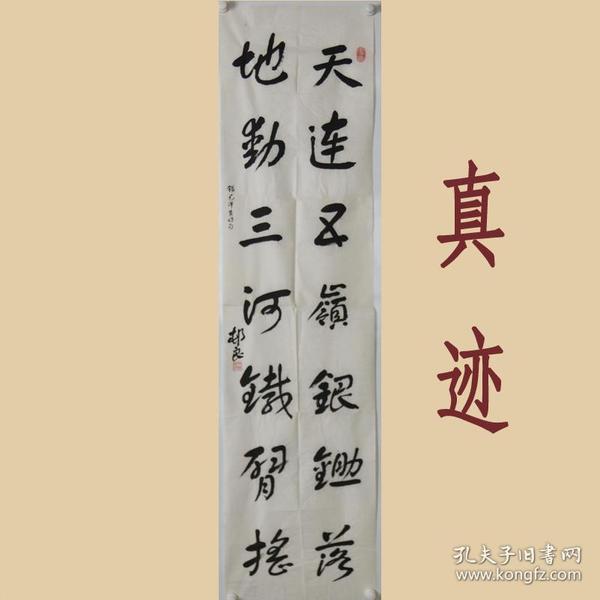 天连五嶺銀鋤落
地動三河鐵臂摇
真迹
孔夫子旧书网
www.kongfz.com